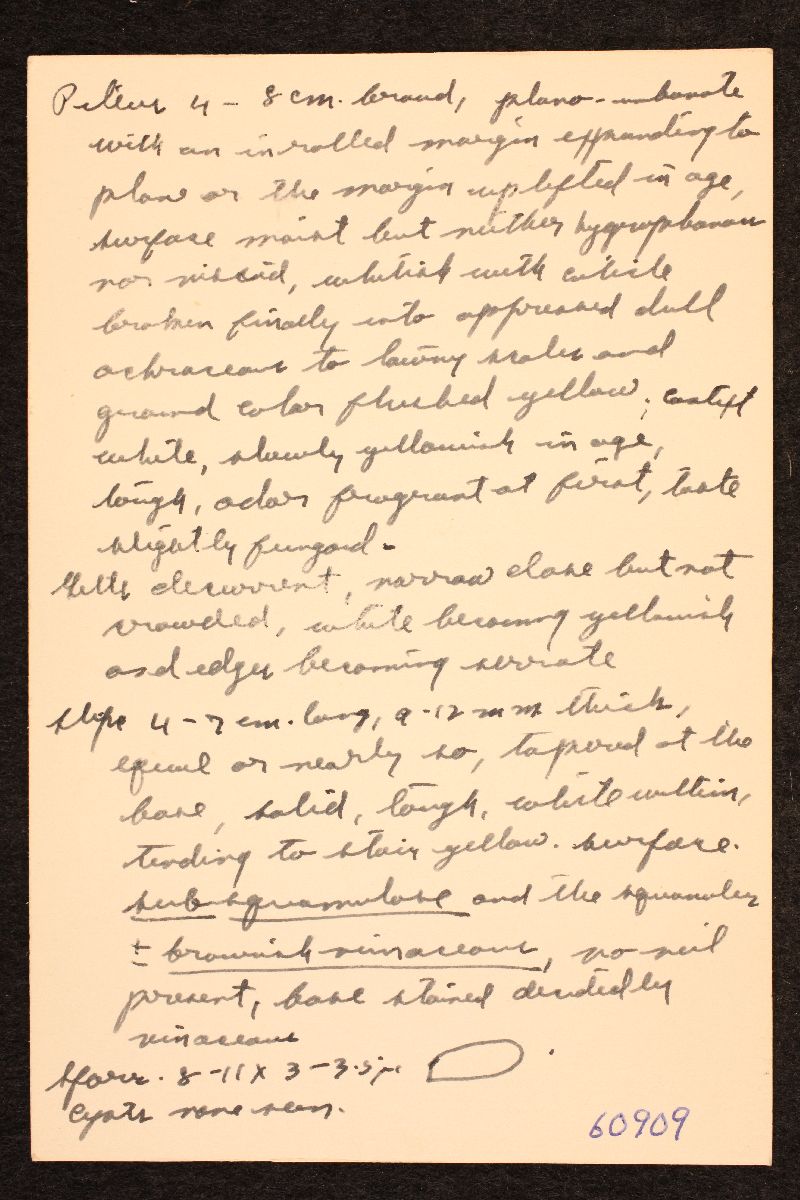 Pileus 4 – 8 cm. broad, plano-umbonate
with an inrolled margin expanding to
plane or the margin uplifted in age,
surface moist but neither hygrophanous
nor viscid, whitish with cuticle
broken finally into appressed dull
ochraceous to tawny scales and
ground color flushed yellow; context
white, slowly yellowish in age,
tough, odor fragrant at first, taste
slightly fungoid -
Gills decurrent, narrow close but not
crowded, white becoming yellowish
and edges becoming serrate
Stipe 4 – 7 cm. long, 9-12 mm thick,
equal or nearly so, tapered at the
base, solid, tough, white within,
tending to stain yellow. surface.
sub squamulose and the squamules
± brownish vinaceous, no veil
present, base stained decidedly
vinaceous
Spores. 8 -11 X 3 – 3.5 µ
Cysts none seen.
60909